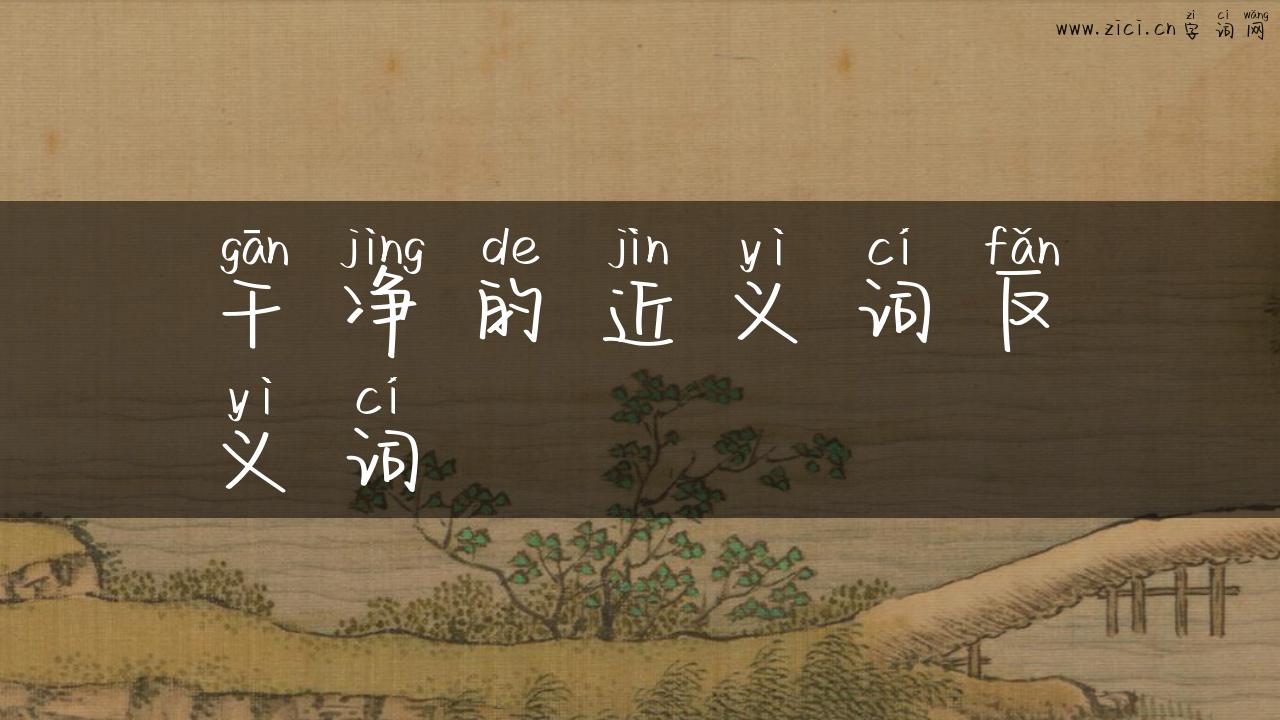 zì cí wǎng
www.zici.cn 字词网
gān jìng de jìn yì cí fǎn
干净的近义词反
yì cí
义词